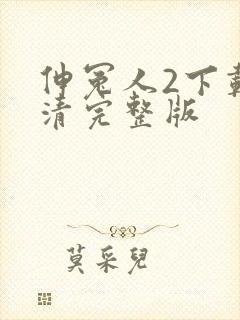 伸冤人2下載
清完整版
莫采兒